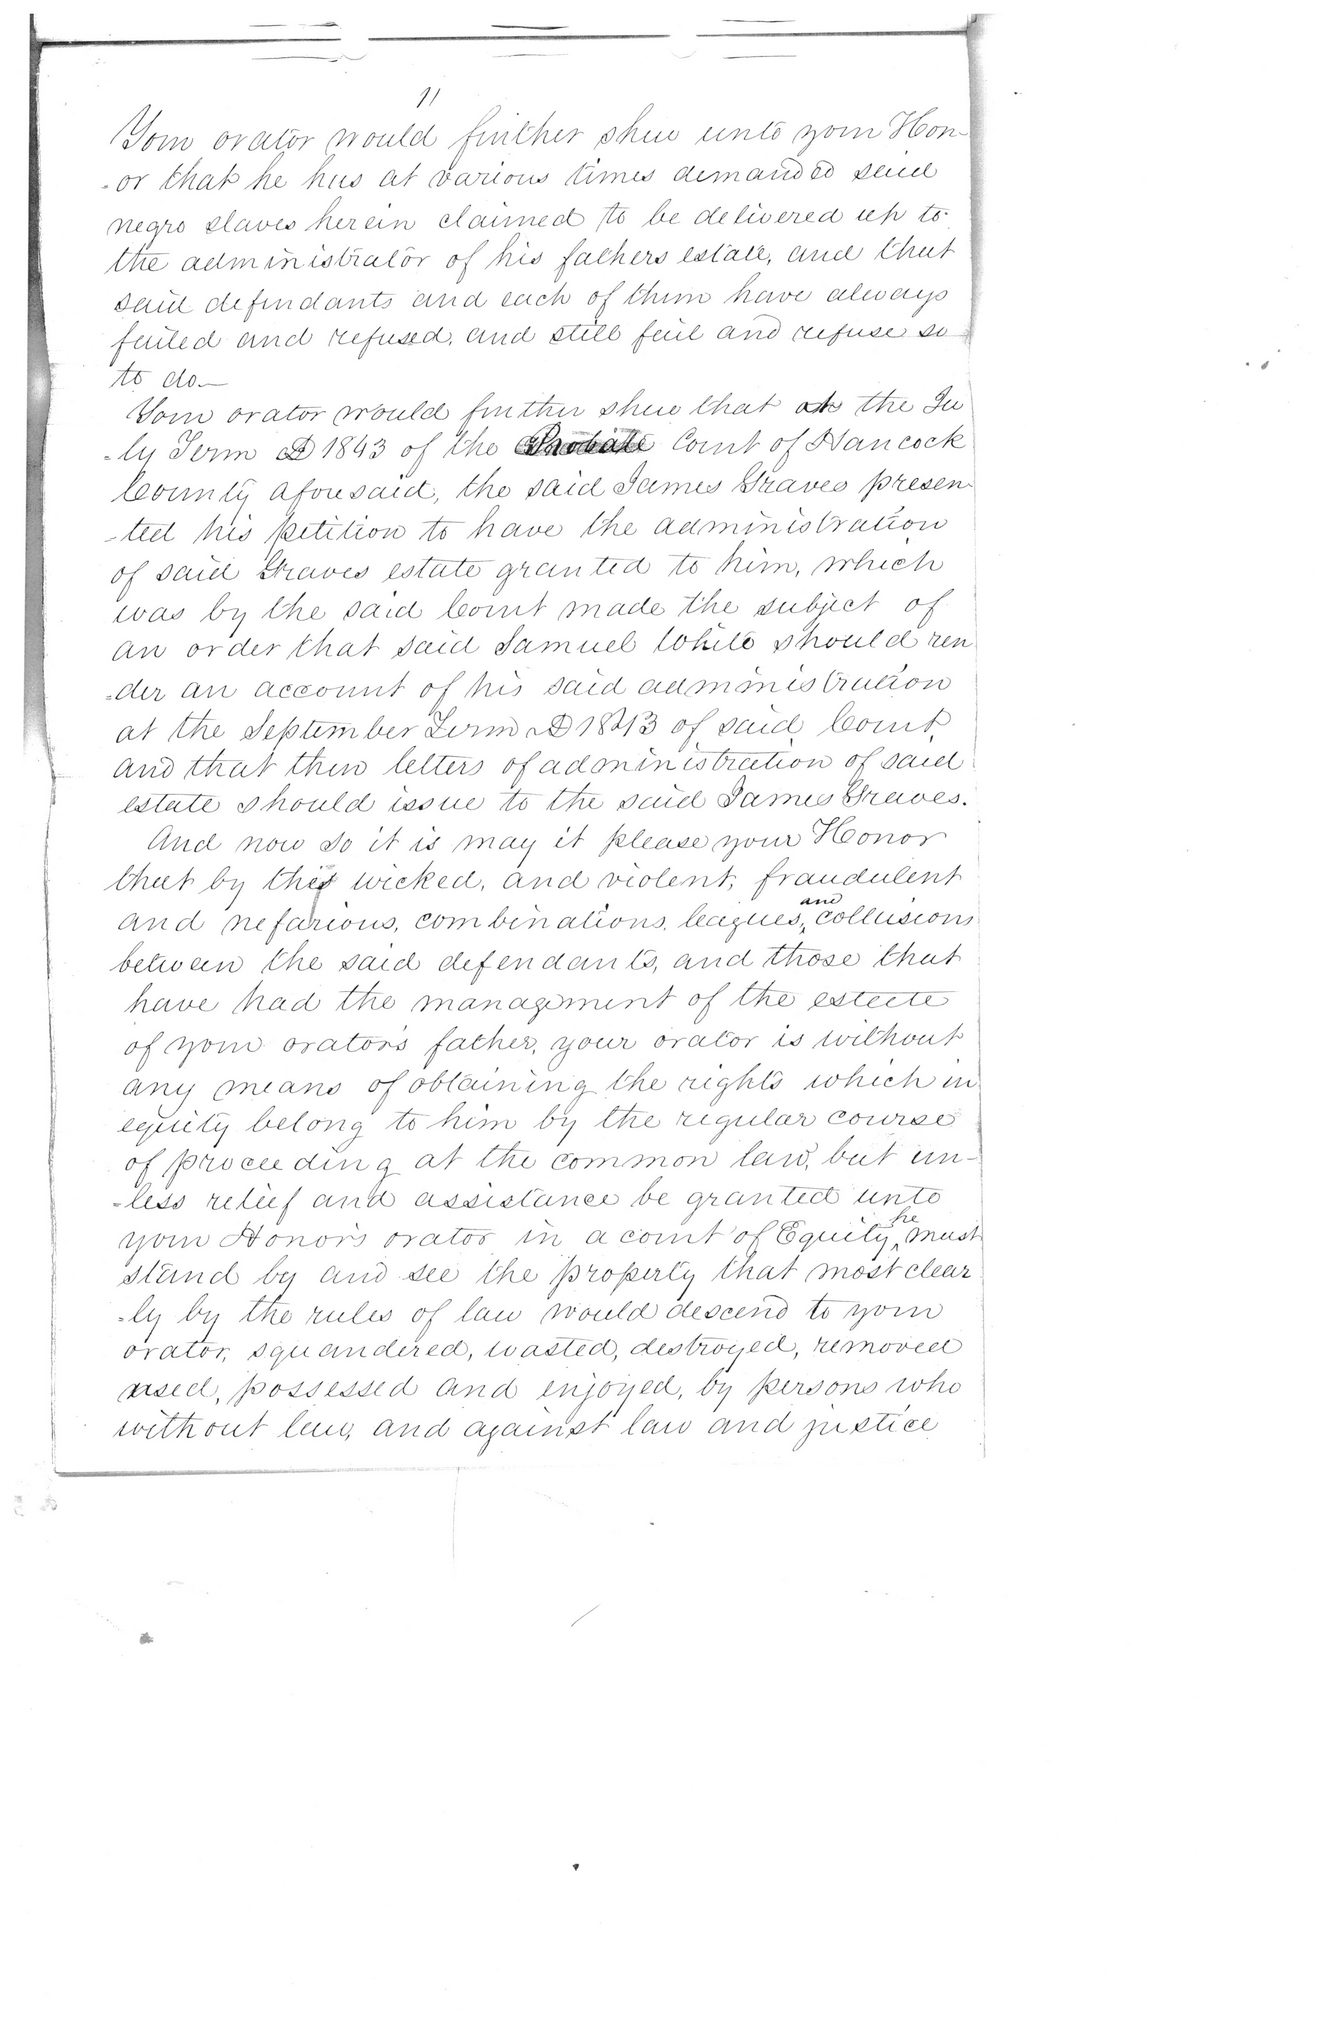 11
Your orator would further shew unto your Hon-
-or that he has at various times demanded said
negro slaves herein claimed to be delivered up to
the administrator of his fathers estate, and that
said defendants and each of them have always
failed and refused, and still fail and refuse so
to do—
Your orator would further shew that at the Ju
-ly Term AD 1843 of the Probate Court of Hancock
County aforesaid, the said James Graves presen-
-ted his petition to have the administration
of said Graves estate granted to him, which
was by the said Court made the subject of
an order that said Samuel White should ren
-der an account of his said administration
at the September Term AD 1843 of said Court,
and that then letters of administration of said
estate should issue to the said James Graves.
And now so it is may it please your Honor
that by the wicked, and violent, fraudulent
and nefarious, combinations, leagues, and collusions
between the said defendants, and those that
have had the management of the estate
of your orator's father, your orator is without
any means of obtaining the rights which in
equity belong to him by the regular course
of proceeding at the common law, but un-
-less relief and assistance be granted unto
your Honor's orator in a court of Equity, he must
stand by and see the property that most clear
-ly by the rules of law would descend to your
orator, squandered, wasted, destroyed, removed
used, possessed and enjoyed, by persons who
without law, and against law and justice